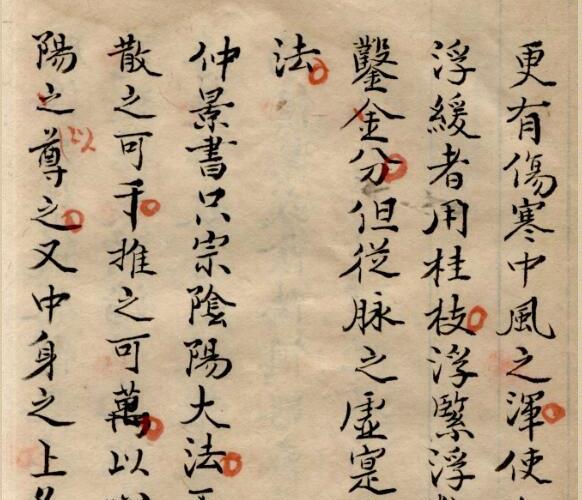 更有傷寒中風之渾使
浮緩者用桂枝浮緊浮
鑿金分但從脉之虛寔
法
仲景書只宗陰陽大法
散之可千推之可萬以
陽之尊之又中身之上
以